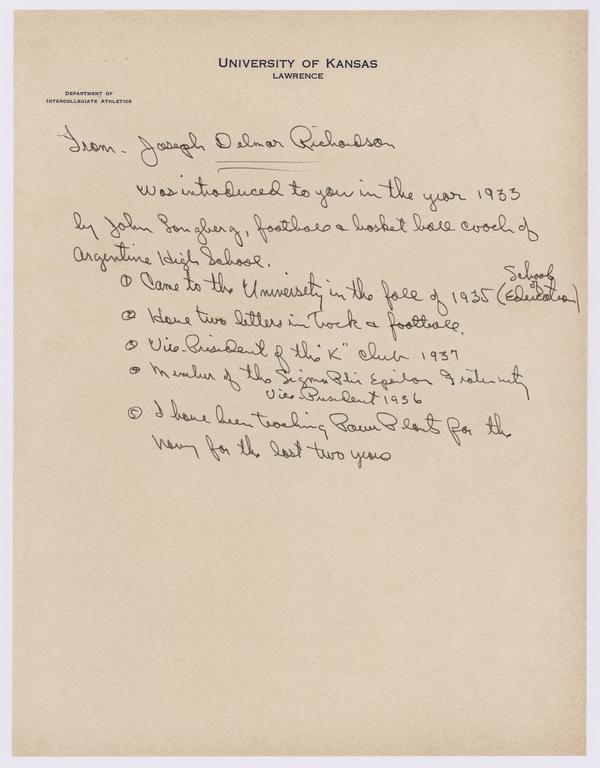 UNIVERSITY OF KANSAS
LAWRENCE
DEPARTMENT OF
INTERCOLLEGIATE ATHLETICS
From - Joseph Delmar Richardson
Was introduced to you in the year 1933
by John Songberg, football & basket ball coach of
Argentine High School.
① Came to the University in the fall of 1935 (School of Education)
② Have two letters in track & football.
③ Vice-President of the "K" club 1937
④ Member of the Sigma Phi Epsilon Fraternity
Vice President 1936
⑤ I have been teaching Power Plants for the
Navy for the last two years